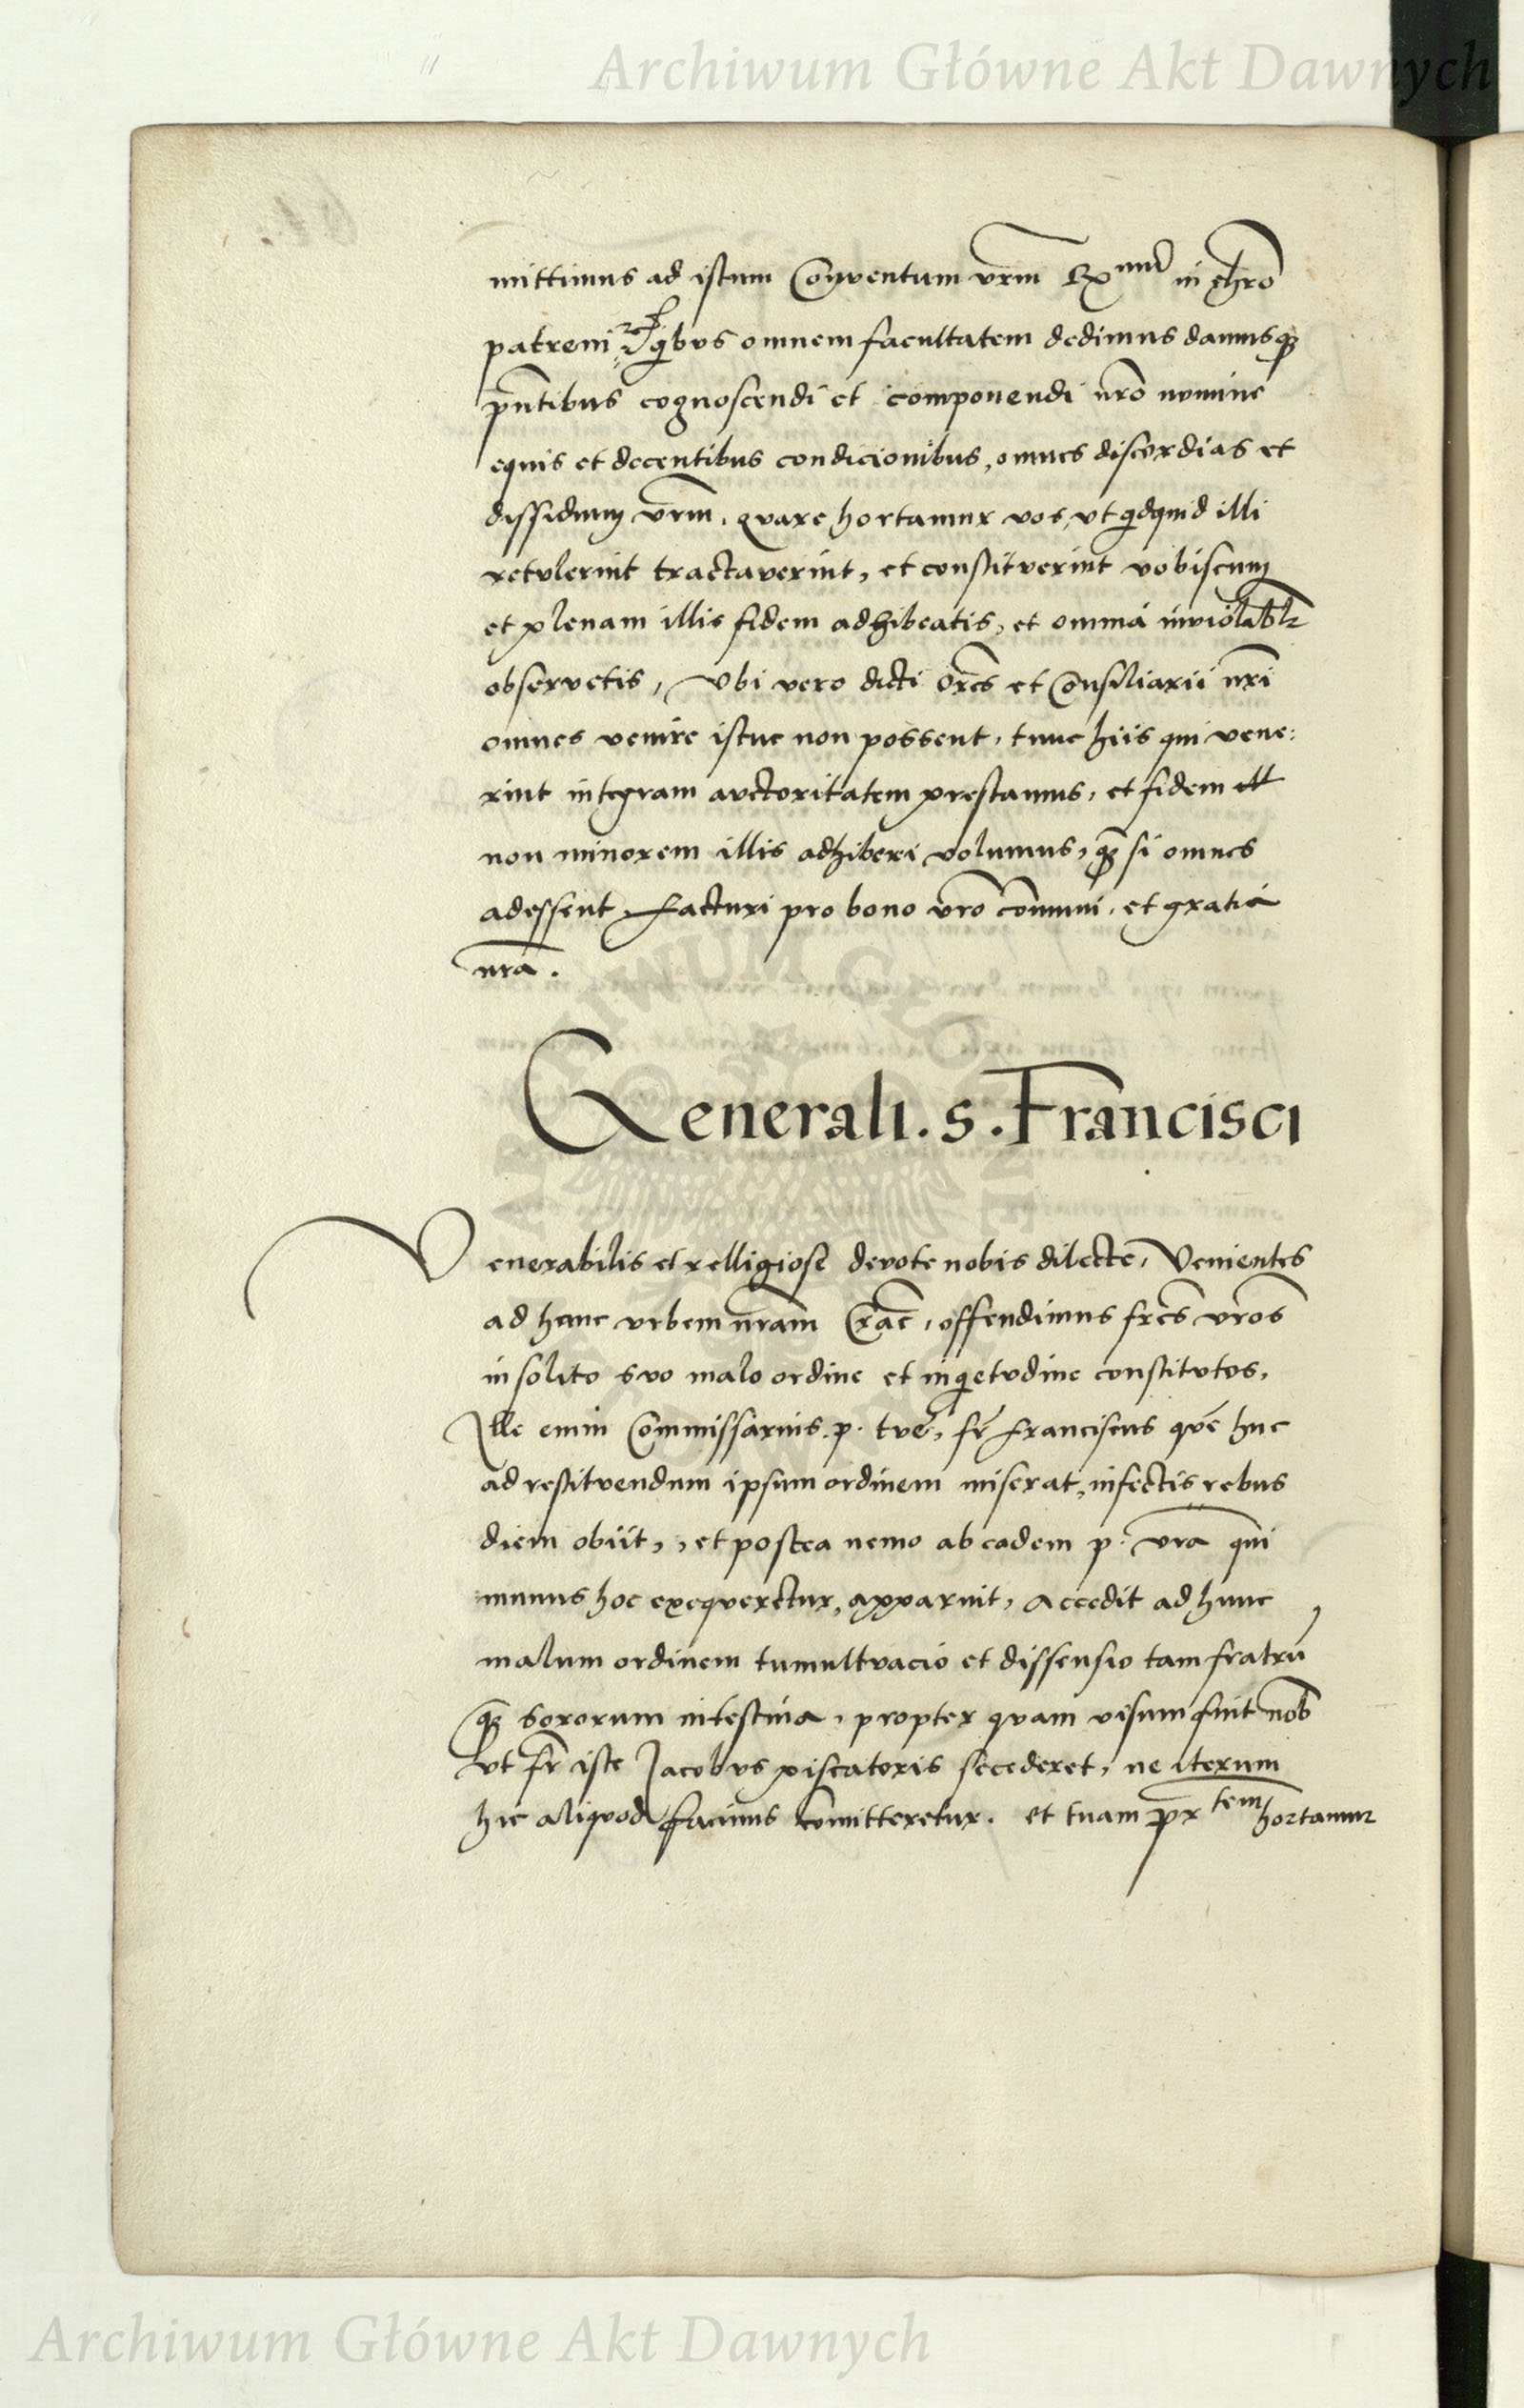 Archiwum Główne Akt Dawnych
mittimus ad istum Conventum vrm̄ Rx^mum in chr̄o
patrem &c qibus omnem facultatem dedimus damusq3
pn̄tibus cognoscendi et componendi nr̄o nomine
equis et decentibus condicionibus, omnes discordias et
dissidium vrm̄, quare hortamur vos, vt qdquid illi
retulerint tractaverint, et constituerint vobiscum
et plenam illis fidem adhibeatis, et omnia inviolabl̄r
observetis, Vbi vero dicti Or̄es et Consiliarii nr̄i
omnes venire istuc non possent, tunc hiis qui vene:
rint integram auctoritatem prestamus, et fidem
non minorem illis adhiberi volumus, q3 si omnes
adessent, facturi pro bono vr̄o com̄uni, et gratia
nr̄a.
Generali . s . Francisci
Venerabilis et relligiose devote nobis dilecte, Venientes
ad hanc vrbem nr̄am Crac̄, offendimus fr̄es vr̄os
in solito suo malo ordine et inqietudine constitutos,
Ille enim Commissarius p. tue, fr̄ Franciscus quē huc
ad restituendum ipsum ordinem miserat, infectis rebus
diem obiit, , et postea nemo ab eadem p. vr̄a qui
munus hoc exequeretur, apparuit, Accedit ad hunc
malum ordinem tumultuacio et dissensio tam fratrū
q3 sororum intestina, propter quam visum fuit nob̄
vt fr̄ iste Jacobus piscatoris secederet, ne iterum
hic aliquod facinus com̄itteretur. et tuam pr̄^tem hortamur
Archiwum Główne Akt Dawnych